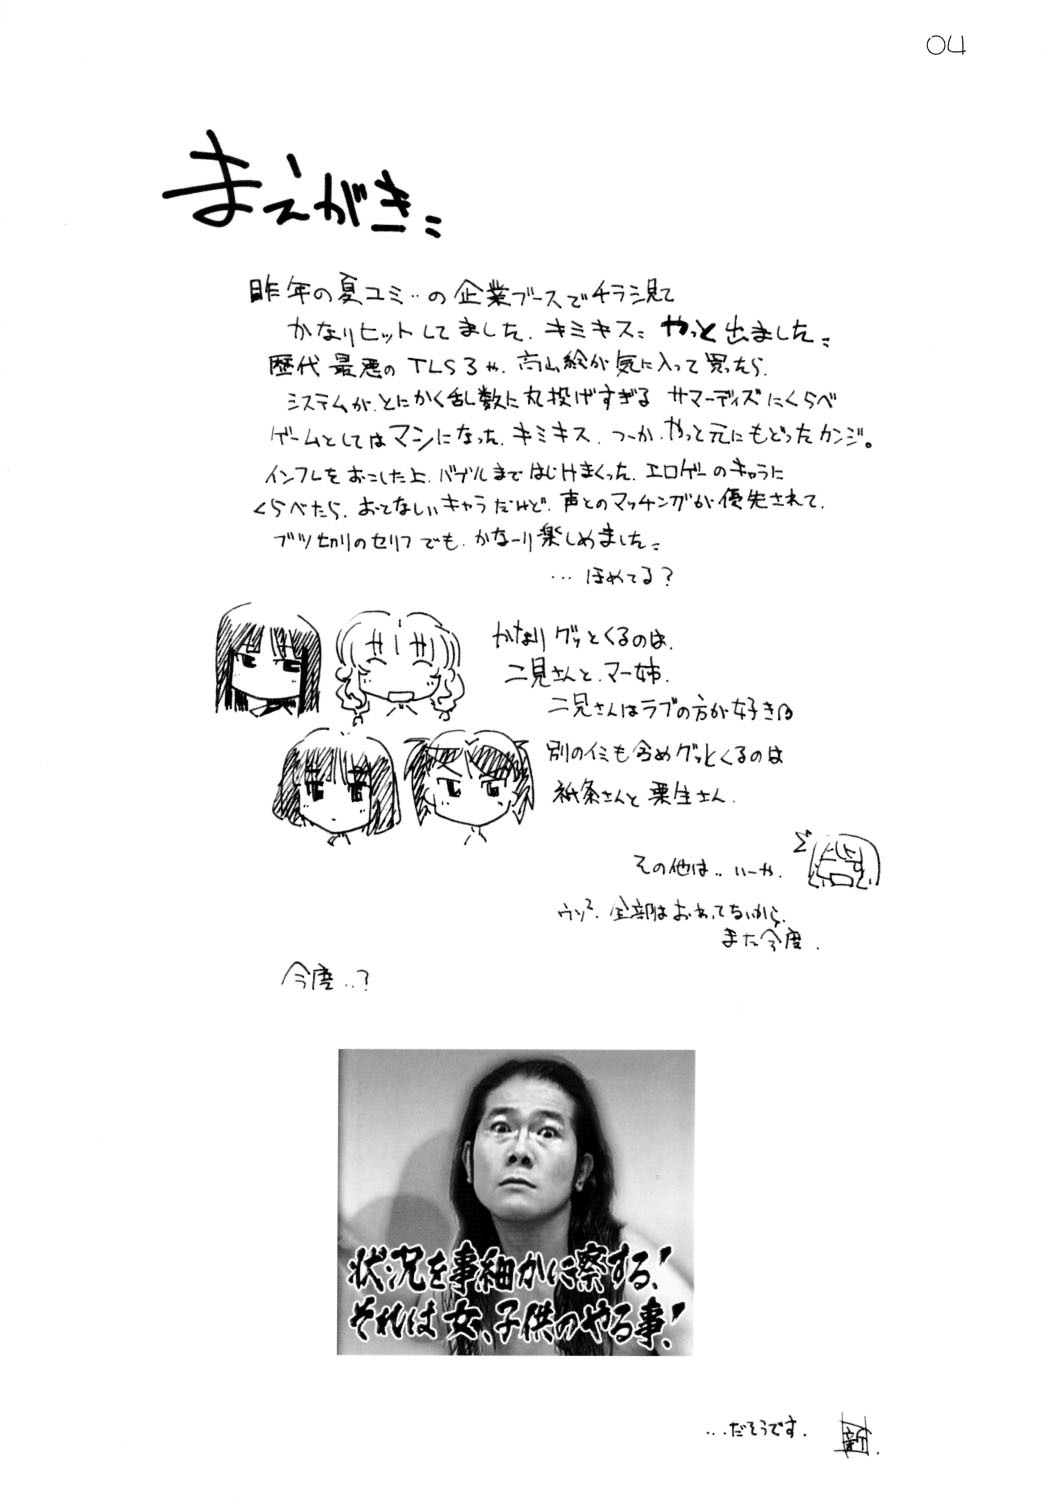 04
まえがき
昨年の夏コミ‥の企業ブースでチラシ見て
かなりヒットしてました、キミキス やっと出ました
歴代最悪のTLS3や、高山絵が気に入って買ったら、
システムが、とにかく乱数に丸投げすぎる サマーデイズにくらべ
ゲームとしてはマシになった、キミキス、つーか、やっと元にもどったカンジ。
インフレをおこした上、バグルまではじけまくった、エロゲーのキャラに
くらべたら、おとなしいキャラだけど、声とのマッチングが優先されて、
ブツ切りのセリフでも、かなーり楽しめました
…ほめてる？
かなりグッとくるのは、
二見さんと、マー姉、
二見さんはラブの方が好き
別のイミも含めグッとくるのは
祇条さんと栗生さん、
その他は‥いーや、
ウソ2、全部はおわってないから、
また今度、
今度‥？
状況を事細かに察する!
それは女、子供のやる事!
…だそうです、
新